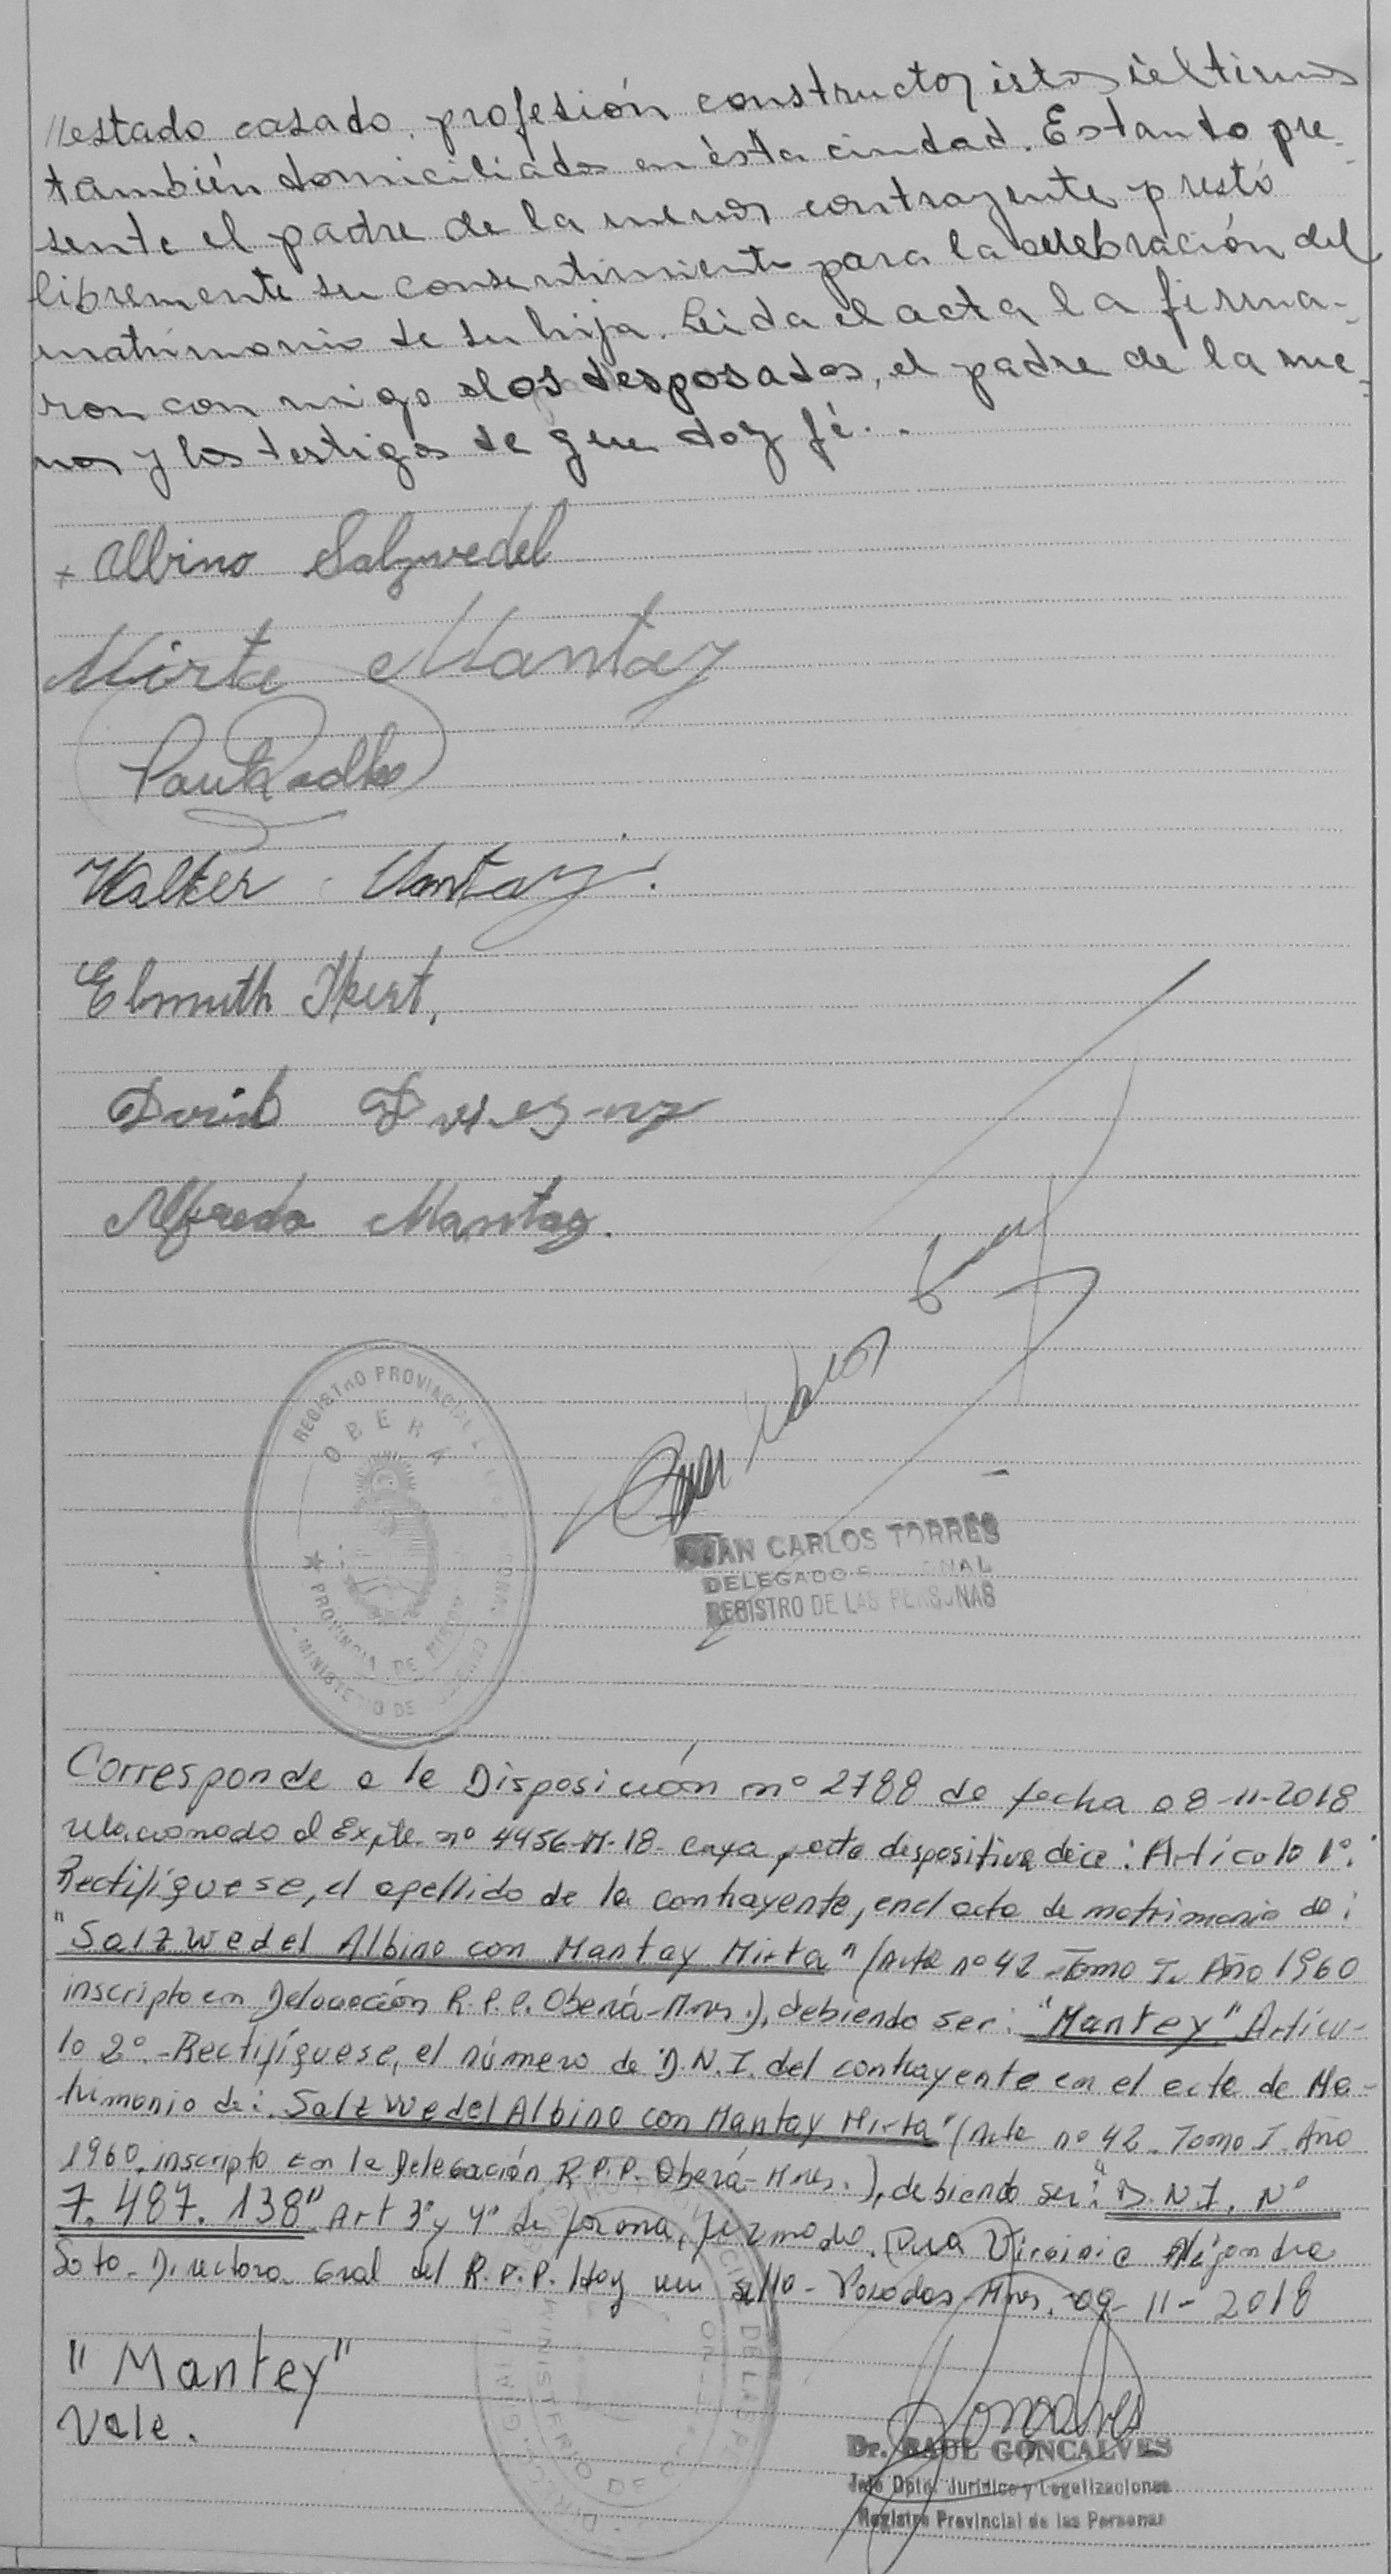 //estado casado, profesión constructor, éstos últimos
también domiciliados en ésta ciudad. Estando pre-
sente el padre de la menor contrayente prestó
libremente su consentimiento para la celebración del
matrimonio de su hija. Leída el acta la firma-
ron con migo los desposados, el padre de la me-
nor y los testigos de que doy fé.-
x Albino Salzwedel
Mirta Mantay
Walter Mantay.
David
Alfredo Mantay.
REGISTRO PROVINCIAL
OBERÁ
PROVINCIA DE MISIONES
MINISTERIO DE GOBIERNO
JUAN CARLOS TORRES
DELEGADO
REGISTRO DE LAS PERSONAS
Corresponde a la Disposición nº 2788 de fecha 08-11-2018
relacionado al Expte. nº 4456-M-18 cuya parte dispositiva dice: Artículo 1º:
Rectifíquese, el apellido de la contrayente, en el acta de matrimonio de:
"Salzwedel Albino con Mantay Mirta" (Acta nº 42 - Tomo I. Año 1960
inscripto en Delegación R.P.P. Oberá-Mnes.), debiendo ser: "Mantey" Artícu-
lo 2º.-Rectifíquese, el número de D.N.I. del contrayente en el acta de Ma-
trimonio de: Salzwedel Albino con Mantay Mirta" (Acta nº 42 - Tomo I. Año
1960. inscripto en la Delegación R.P.P. Oberá-Mnes.), debiendo ser: "D.N.I. Nº
7.487.138". Art 3º y 4º de forma, firmado. Dra Virginia Alejandra
Soto - Directora Gral del R.P.P. Hay un sello - Posadas-Mnes. 09-11-2018
"Mantey"
Vale.
Dr. RAUL GONCALVES
Jefe Dpto. Jurídico y Legalizaciones
Registro Provincial de las Personas